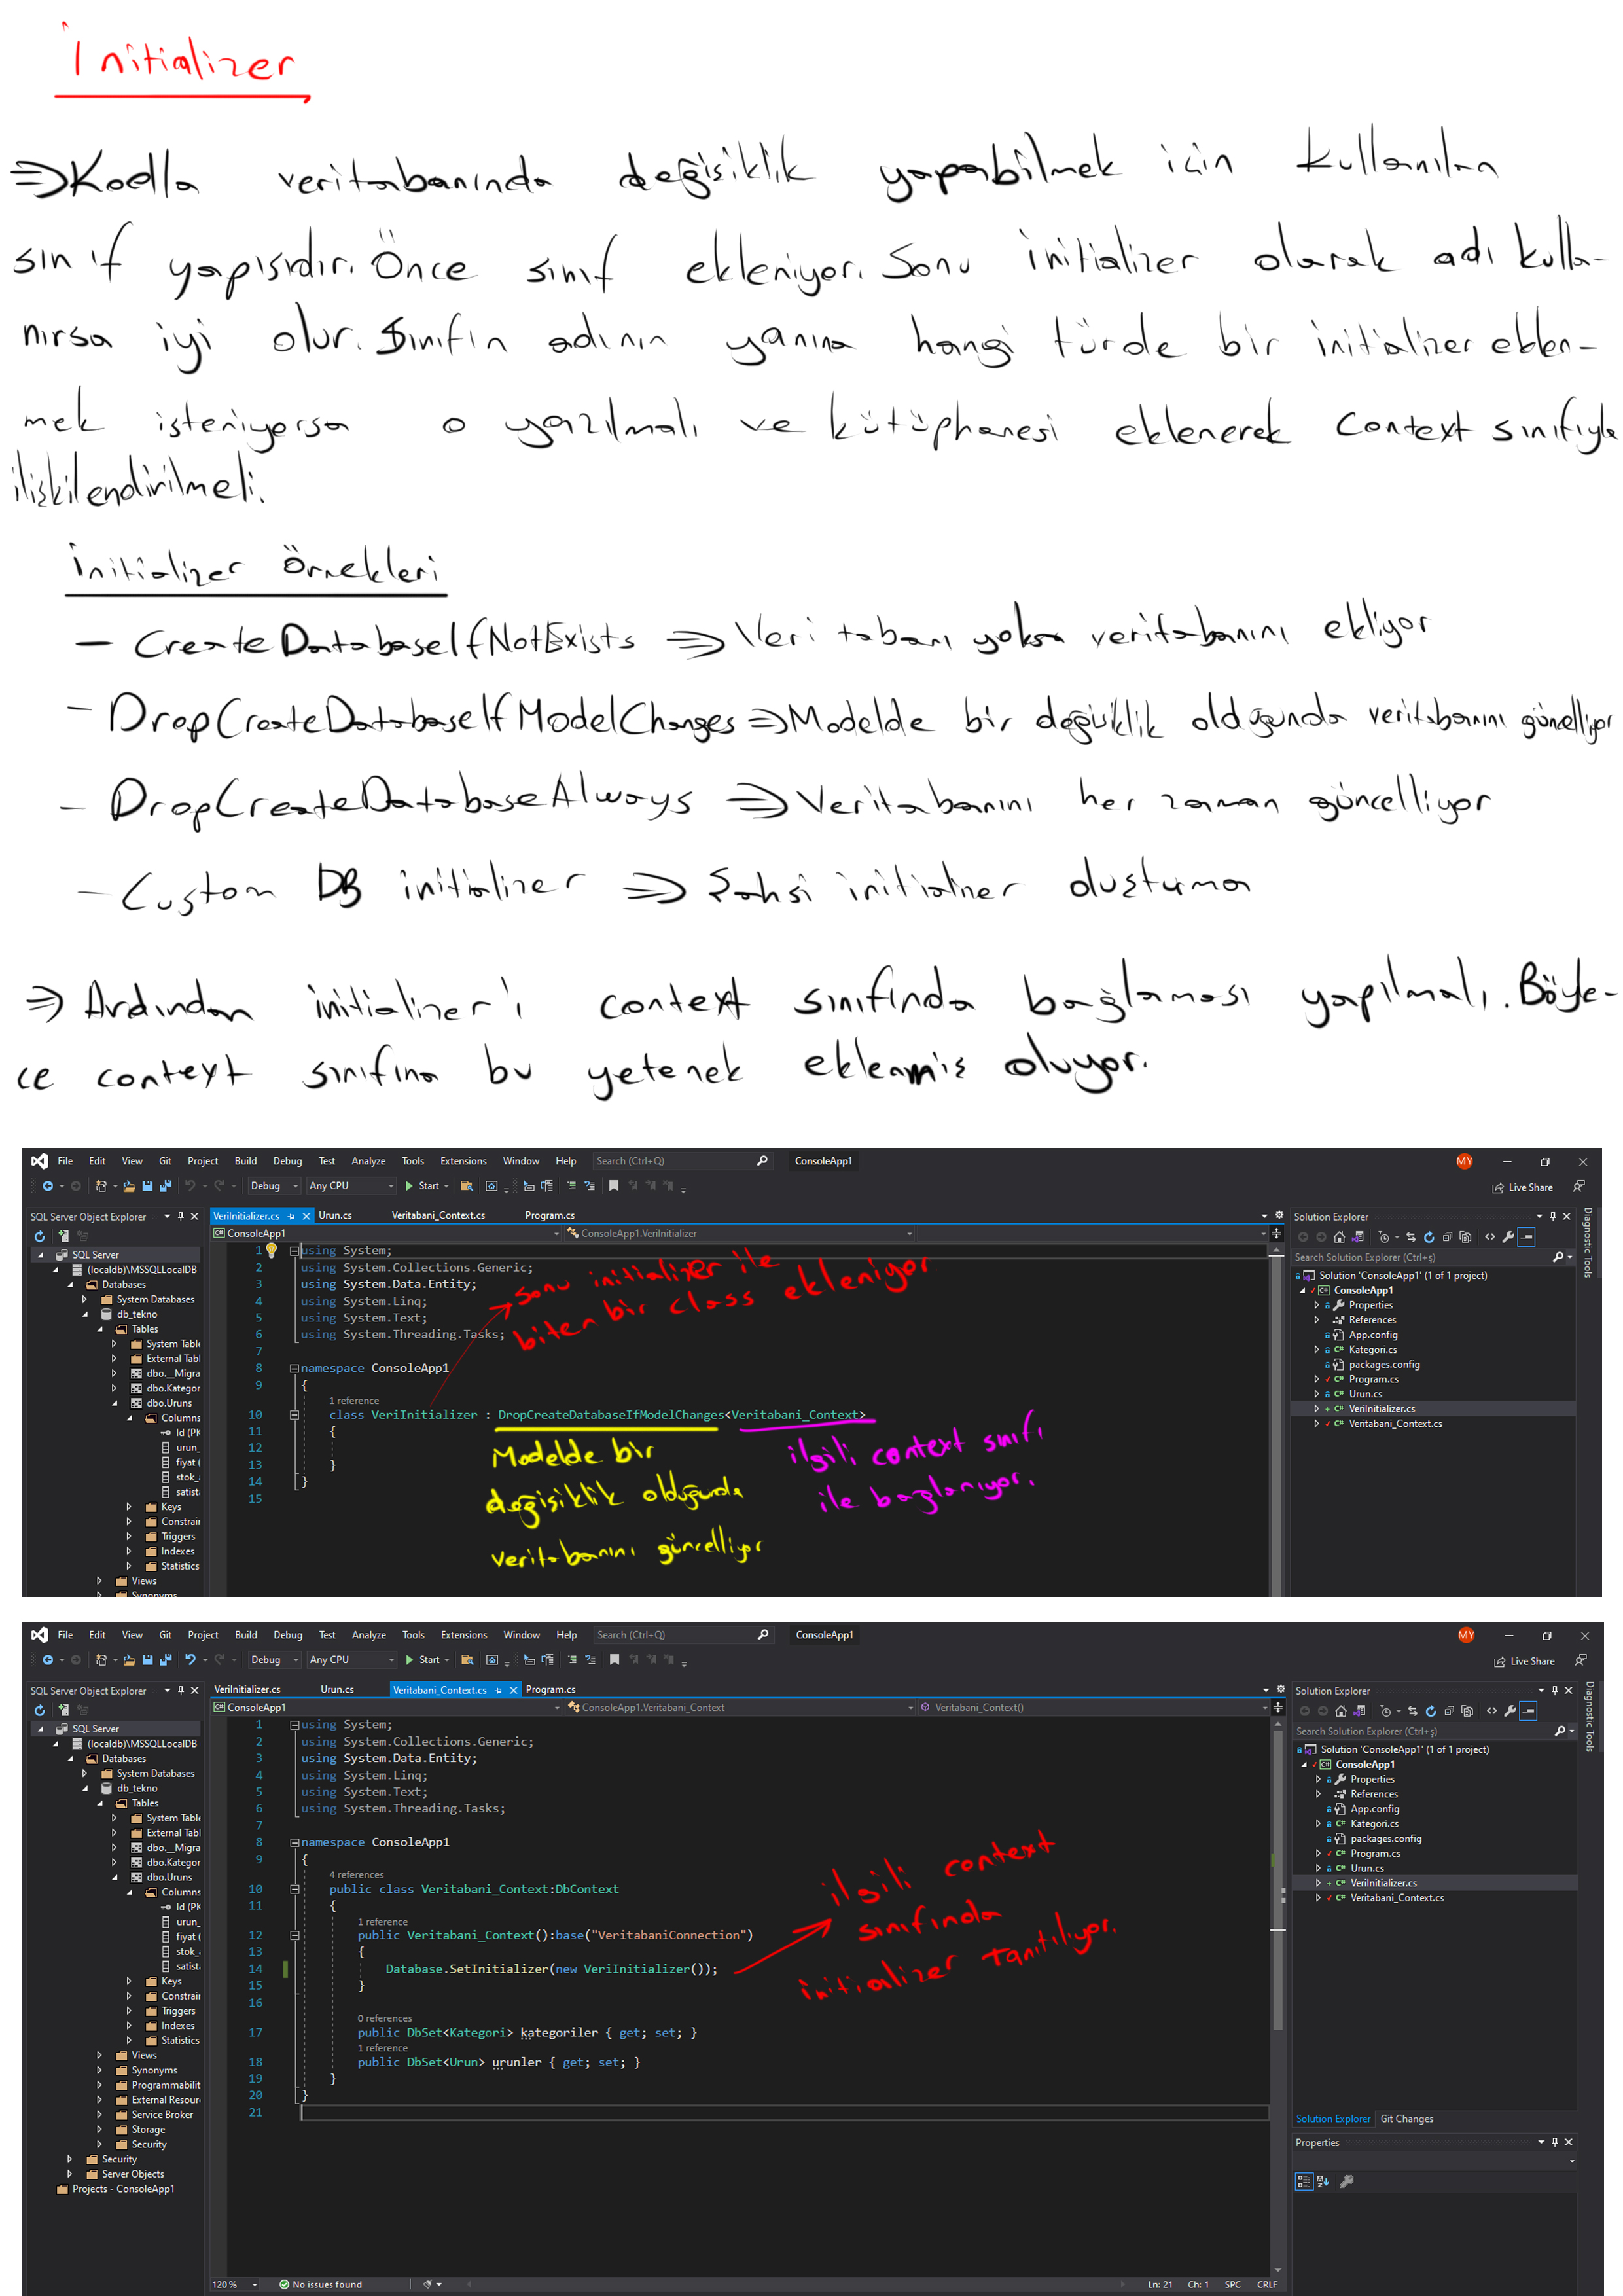 İnitializer
⇒Kodla veritabanında değişiklik yapabilmek için kullanılan
sınıf yapısıdır. Önce sınıf ekleniyor. Sonu initializer olarak adı kulla-
nırsa iyi olur. Sınıfın adının yanına hangi türde bir initializer eklen-
mek isteniyorsa o yazılmalı ve kütüphanesi eklenerek context sınıfıyla
ilişkilendirilmeli.
İnitializer Örnekleri
- CreateDatabaseIfNotExists ⇒ Veri tabanı yoksa veritabanını ekliyor
- DropCreateDatabaseIfModelChanges ⇒ Modelde bir değişiklik olduğunda veritabanını güncelliyor
- DropCreateDatabaseAlways ⇒ Veritabanını her zaman güncelliyor
- Custom DB initializer ⇒ Şahsi initializer oluşturma
⇒ Ardından initializer'ı context sınıfında bağlaması yapılmalı. Böyle-
ce context sınıfına bu yetenek eklenmiş oluyor.
File Edit View Git Project Build Debug Test Analyze Tools Extensions Window Help Search (Ctrl+Q) ConsoleApp1 MY
Debug Any CPU Start Live Share
SQL Server Object Explorer
SQL Server
(localdb)\MSSQLLocalDB
Databases
System Databases
db_tekno
Tables
System Table
External Tabl
dbo.__Migra
dbo.Kategor
dbo.Uruns
Columns
Id (PK
urun_
fiyat (
stok_a
satista
Keys
Constrair
Triggers
Indexes
Statistics
Views
Synonyms
VeriInitializer.cs Urun.cs Veritabani_Context.cs Program.cs
ConsoleApp1 ConsoleApp1.VeriInitializer
1 using System;
2 using System.Collections.Generic;
3 using System.Data.Entity;
4 using System.Linq;
5 using System.Text;
6 using System.Threading.Tasks;
7
8 namespace ConsoleApp1
9 {
1 reference
10 class VeriInitializer : DropCreateDatabaseIfModelChanges<Veritabani_Context>
11 {
12
13 }
14 }
15
sonu initializer ile
biten bir class ekleniyor
Modelde bir
değişiklik olduğunda
veritabanını güncelliyor
ilgili context sınıfı
ile bağlanıyor.
Solution Explorer
Search Solution Explorer (Ctrl+ş)
Solution 'ConsoleApp1' (1 of 1 project)
ConsoleApp1
Properties
References
App.config
Kategori.cs
packages.config
Program.cs
Urun.cs
VeriInitializer.cs
Veritabani_Context.cs
Diagnostic Tools
File Edit View Git Project Build Debug Test Analyze Tools Extensions Window Help Search (Ctrl+Q) ConsoleApp1 MY
Debug Any CPU Start Live Share
SQL Server Object Explorer
SQL Server
(localdb)\MSSQLLocalDB
Databases
System Databases
db_tekno
Tables
System Table
External Tabl
dbo.__Migra
dbo.Kategor
dbo.Uruns
Columns
Id (PK
urun_
fiyat (
stok_a
satista
Keys
Constrair
Triggers
Indexes
Statistics
Views
Synonyms
Programmabilit
External Resour
Service Broker
Storage
Security
Security
Server Objects
Projects - ConsoleApp1
VeriInitializer.cs Urun.cs Veritabani_Context.cs Program.cs
ConsoleApp1 ConsoleApp1.Veritabani_Context Veritabani_Context()
1 using System;
2 using System.Collections.Generic;
3 using System.Data.Entity;
4 using System.Linq;
5 using System.Text;
6 using System.Threading.Tasks;
7
8 namespace ConsoleApp1
9 {
4 references
10 public class Veritabani_Context:DbContext
11 {
1 reference
12 public Veritabani_Context():base("VeritabaniConnection")
13 {
14 Database.SetInitializer(new VeriInitializer());
15 }
16
0 references
17 public DbSet<Kategori> kategoriler { get; set; }
1 reference
18 public DbSet<Urun> urunler { get; set; }
19 }
20 }
21
ilgili context
sınıfında
initializer tanıtılıyor.
Solution Explorer
Search Solution Explorer (Ctrl+ş)
Solution 'ConsoleApp1' (1 of 1 project)
ConsoleApp1
Properties
References
App.config
Kategori.cs
packages.config
Program.cs
Urun.cs
VeriInitializer.cs
Veritabani_Context.cs
Diagnostic Tools
Solution Explorer Git Changes
Properties
120 % No issues found Ln: 21 Ch: 1 SPC CRLF